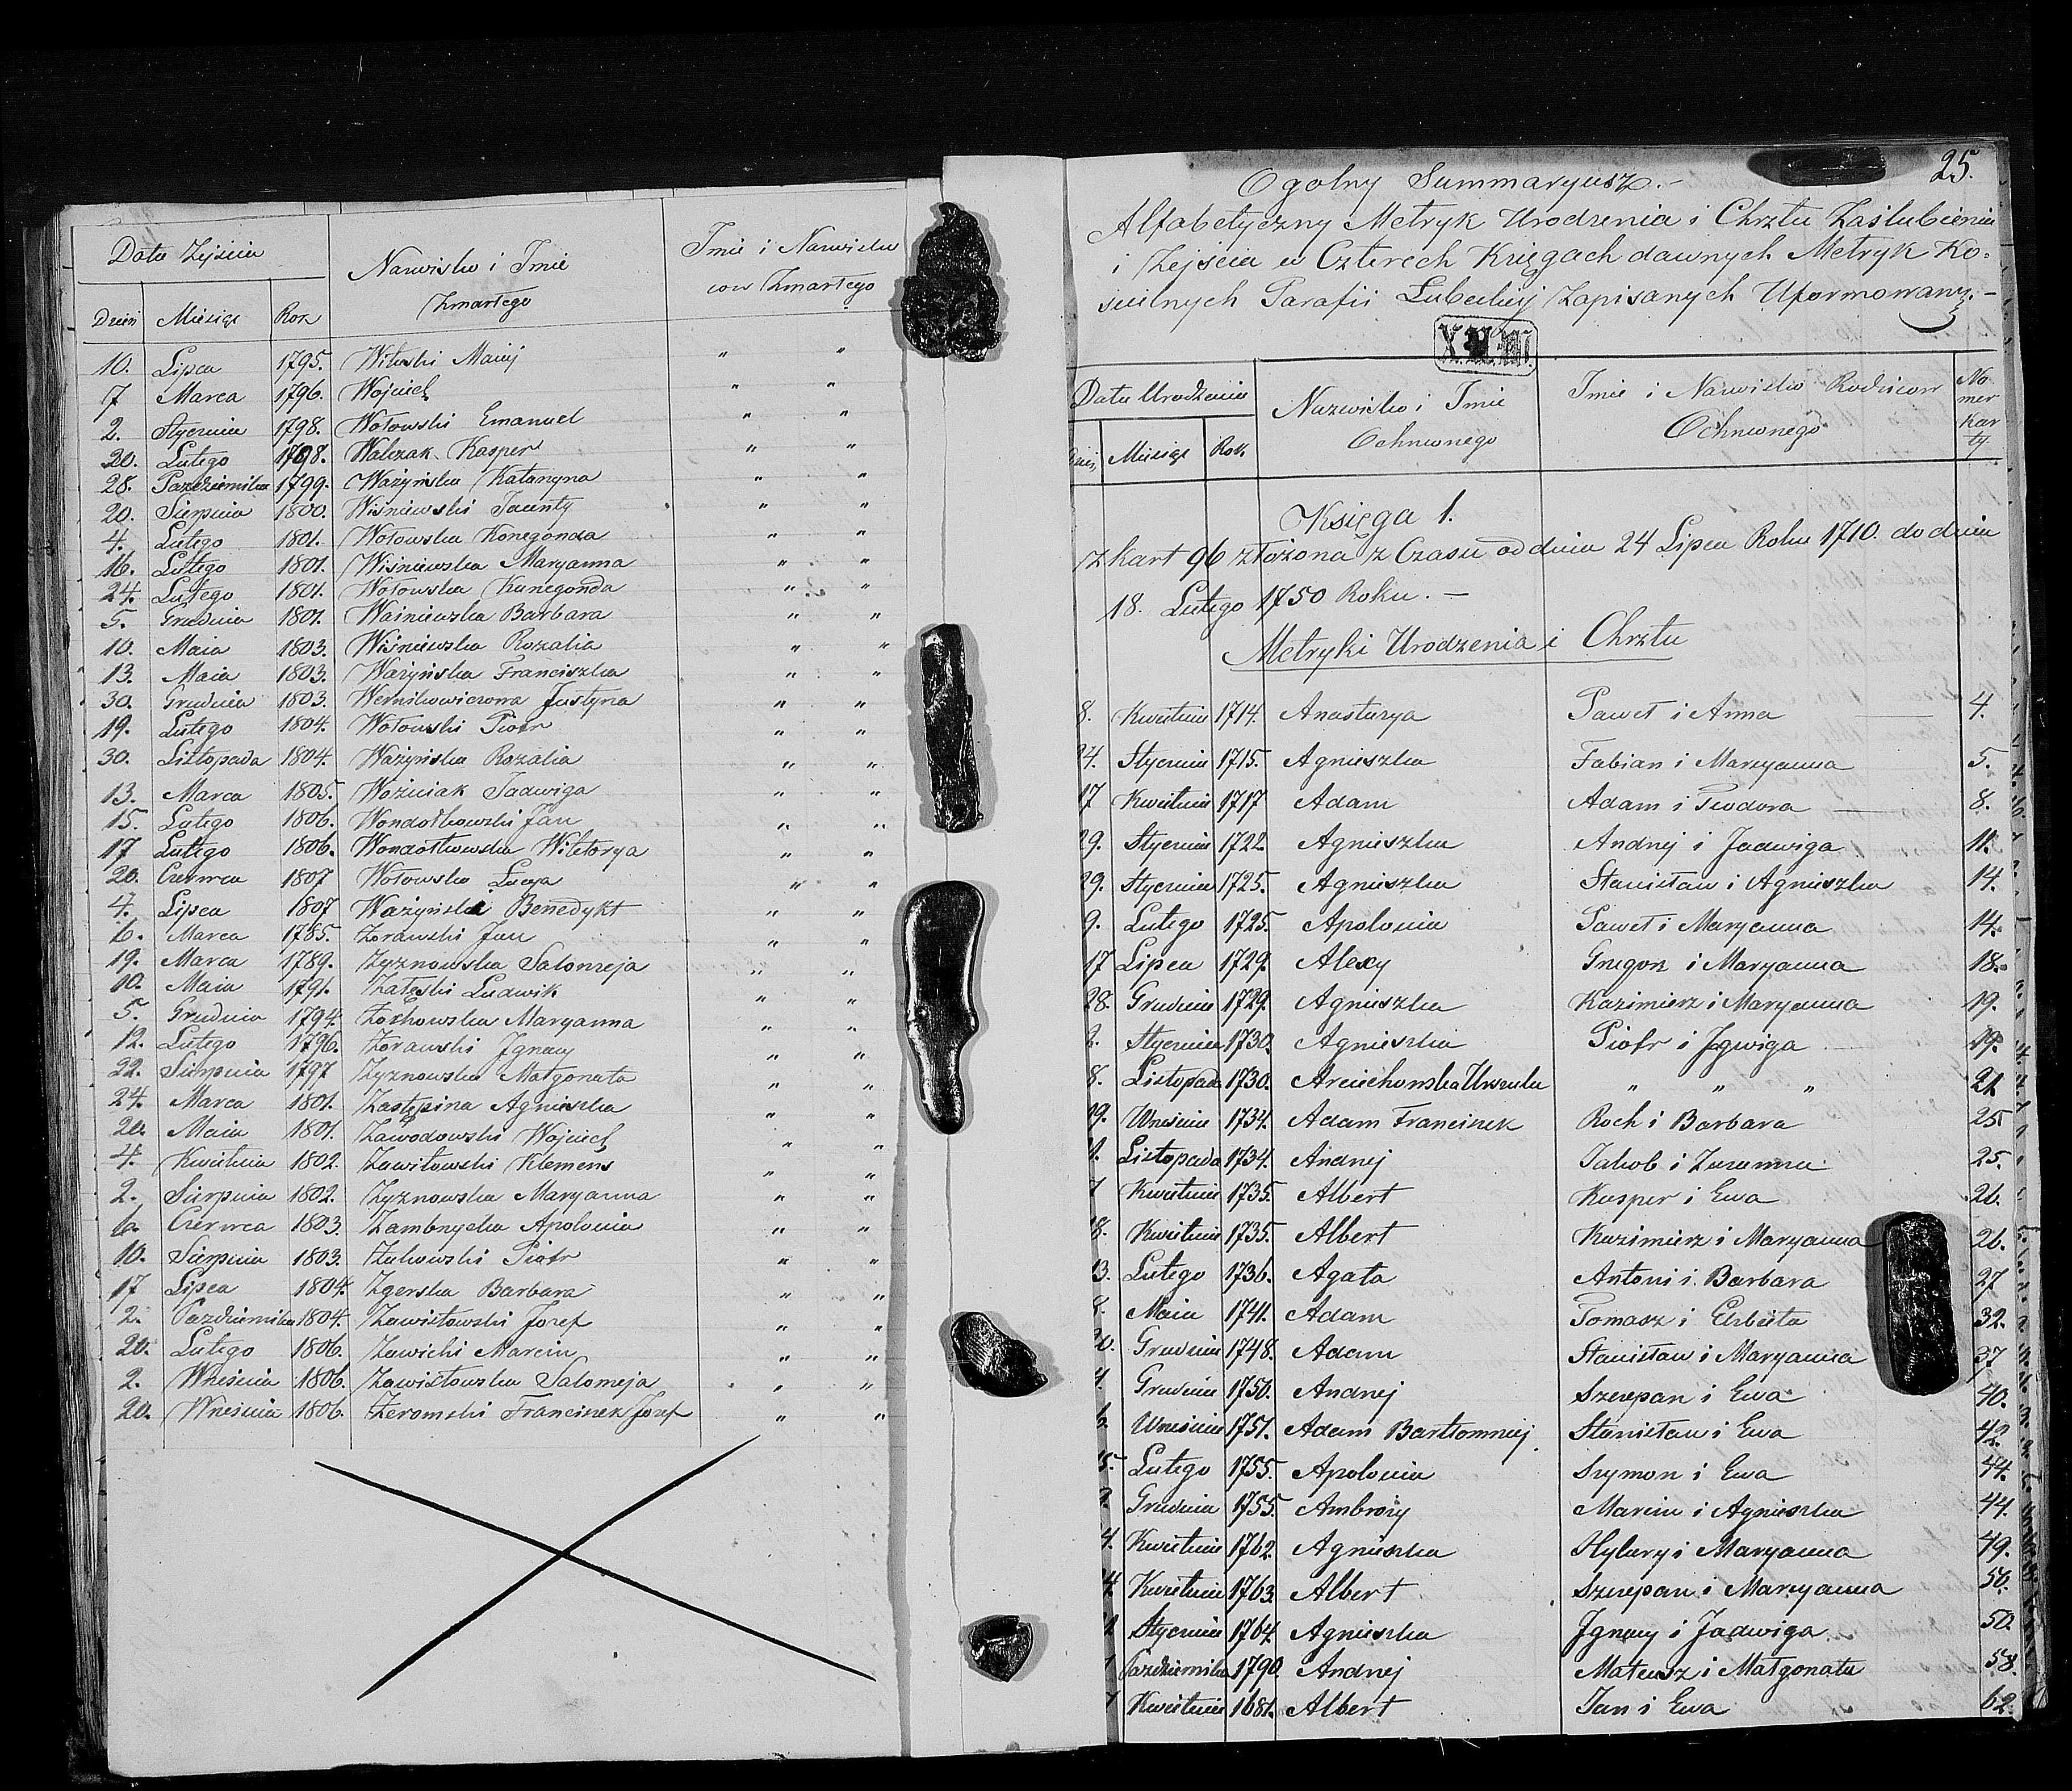 Data Zejścia
Nazwisko i Imie
Zmarłego
Imie i Nazwisko
Zmarłego
Dzień Miesiąc Rok
10. Lipca 1795. Maciej " "
7 Marca 1796. Wojciech " "
2. Stycznia 1798. Wołowski Emanuel " "
20. Lutego 1798. Walczak Kasper " "
28. Października 1799. Ważyńska Katarzyna " "
20. Sierpnia 1800. Wiśniewski Jacenty " "
4. Lutego 1801. Wołowska Konegonda " "
16. Lutego 1801. Wiśniewska Maryanna " "
24. Lutego 1801. Wołowska Kunegonda " "
5. Grudnia 1801. Barbara " "
10. Maia 1803. Wiśniewska Rozalia " "
13. Maia 1803. Ważyńska Franciszka " "
30. Grudnia 1803. Wernikowiczowa Justyna " "
19. Lutego 1804. Wołowski Piotr " "
30. Listopada 1804. Ważyńska Rozalia " "
13. Marca 1805. Woźniak Jadwiga " "
15. Lutego 1806. Wondołkowski Jan " "
17 Lutego 1806. Wondołkowska Wiktorya " "
20. Czerwca 1807 Wołowska Łucya " "
4. Lipca 1807 Ważyński Benedykt " "
6. Marca 1785. Żorawski Jan " "
19. Marca 1789. Zyznowska Salomeja " "
10. Maia 1791. Załęski Ludwik " "
5. Grudnia 1794. Żochowska Maryanna " "
12. Lutego 1796. Żorawski Ignacy " "
22. Sierpnia 1797 Zyznowska Małgorzata " "
24. Marca 1801. Zastępina Agnieszka " "
20. Maia 1801. Zawodowski Wojciech " "
4. Kwietnia 1802. Klemens " "
2. Sierpnia 1802. Zyznowska Maryanna " "
6. Czerwca 1803. Zambrzycka Apolonia " "
10. Sierpnia 1803. Żukowski Piotr " "
17 Lipca 1804. Zgerska Barbara " "
2. Października 1804. Zawistowski Jozef " "
20. Lutego 1806. Zawicki Marcin " "
2. Września 1806. Zawistowska Salomeja " "
20. Września 1806. Żeromski Franciszek Jozef " "
25.
Ogolny Summaryusz.-
Alfabetyczny Metryk Urodzenia i Chrztu Zaślubienia
i Zejścia w Czterech Księgach dawnych Metryk Ko-
ścielnych Parafii Zapisanych Uformowany.-
Data Urodzenia
Nazwisko i Imie
Ochrzconego
Imie i Nazwisko Rodzicow
Ochrzconego
No
mer
Kar
ty
Dzień Miesiąc Rok
Księga 1.
z Kart 96 złożona z Czasu od dnia 24 Lipca Roku 1710. do dnia
18. Lutego 1750 Roku.-
Metryki Urodzenia i Chrztu
8. Kwietnia 1714. Anastazya Paweł i Anna 4.
24. Stycznia 1715. Agnieszka Fabian i Maryanna 5.
17 Kwietnia 1717 Adam Adam i Teodora 8.
29. Stycznia 1722 Agnieszka Andrzej i Jadwiga 11.
29. Stycznia 1725. Agnieszka Stanisław i Agnieszka 14.
9. Lutego 1725. Apolonia Paweł i Maryanna 14.
17 Lipca 1729. Alexy Grzegorz i Maryanna 18.
28. Grudnia 1729. Agnieszka Kazimierz i Maryanna 19.
Stycznia 1730. Agnieszka Piotr i Jgwiga 19.
8. Listopada 1730. Arciechowska Urszula " " " 21
19. Września 1734. Adam Franciszek Roch i Barbara 25
Listopada 1734. Andrzej Jakob i Zuzanna 25.
7 Kwietnia 1735. Albert Kasper i Ewa 26.
18. Kwietnia 1735. Albert Kazimierz i Maryanna 26.
13. Lutego 1736. Agata Antoni i Barbara 27
Maia 1741. Adam Tomasz i Elżbieta 32.
20. Grudnia 1748. Adam Stanisław i Maryanna 37
4. Grudnia 1750. Andrzej Szczepan i Ewa 40.
6. Września 1751. Adam Bartłomniej Stanisław i Ewa 42.
15. Lutego 1755. Apolonia Szymon i Ewa 44.
Grudnia 1755. Ambroży Marcin i Agnieszka 44.
4. Kwietnia 1762. Agnieszka Hylary i Maryanna 49.
24. Kwietnia 1763. Albert Szczepan i Maryanna 50.
Stycznia 1764. Agnieszka Jgnacy i Jadwiga 50.
Października 1790 Andrzej Mateusz i Małgorzata 58.
7 Kwietnia 1681. Albert Jan i Ewa 62.